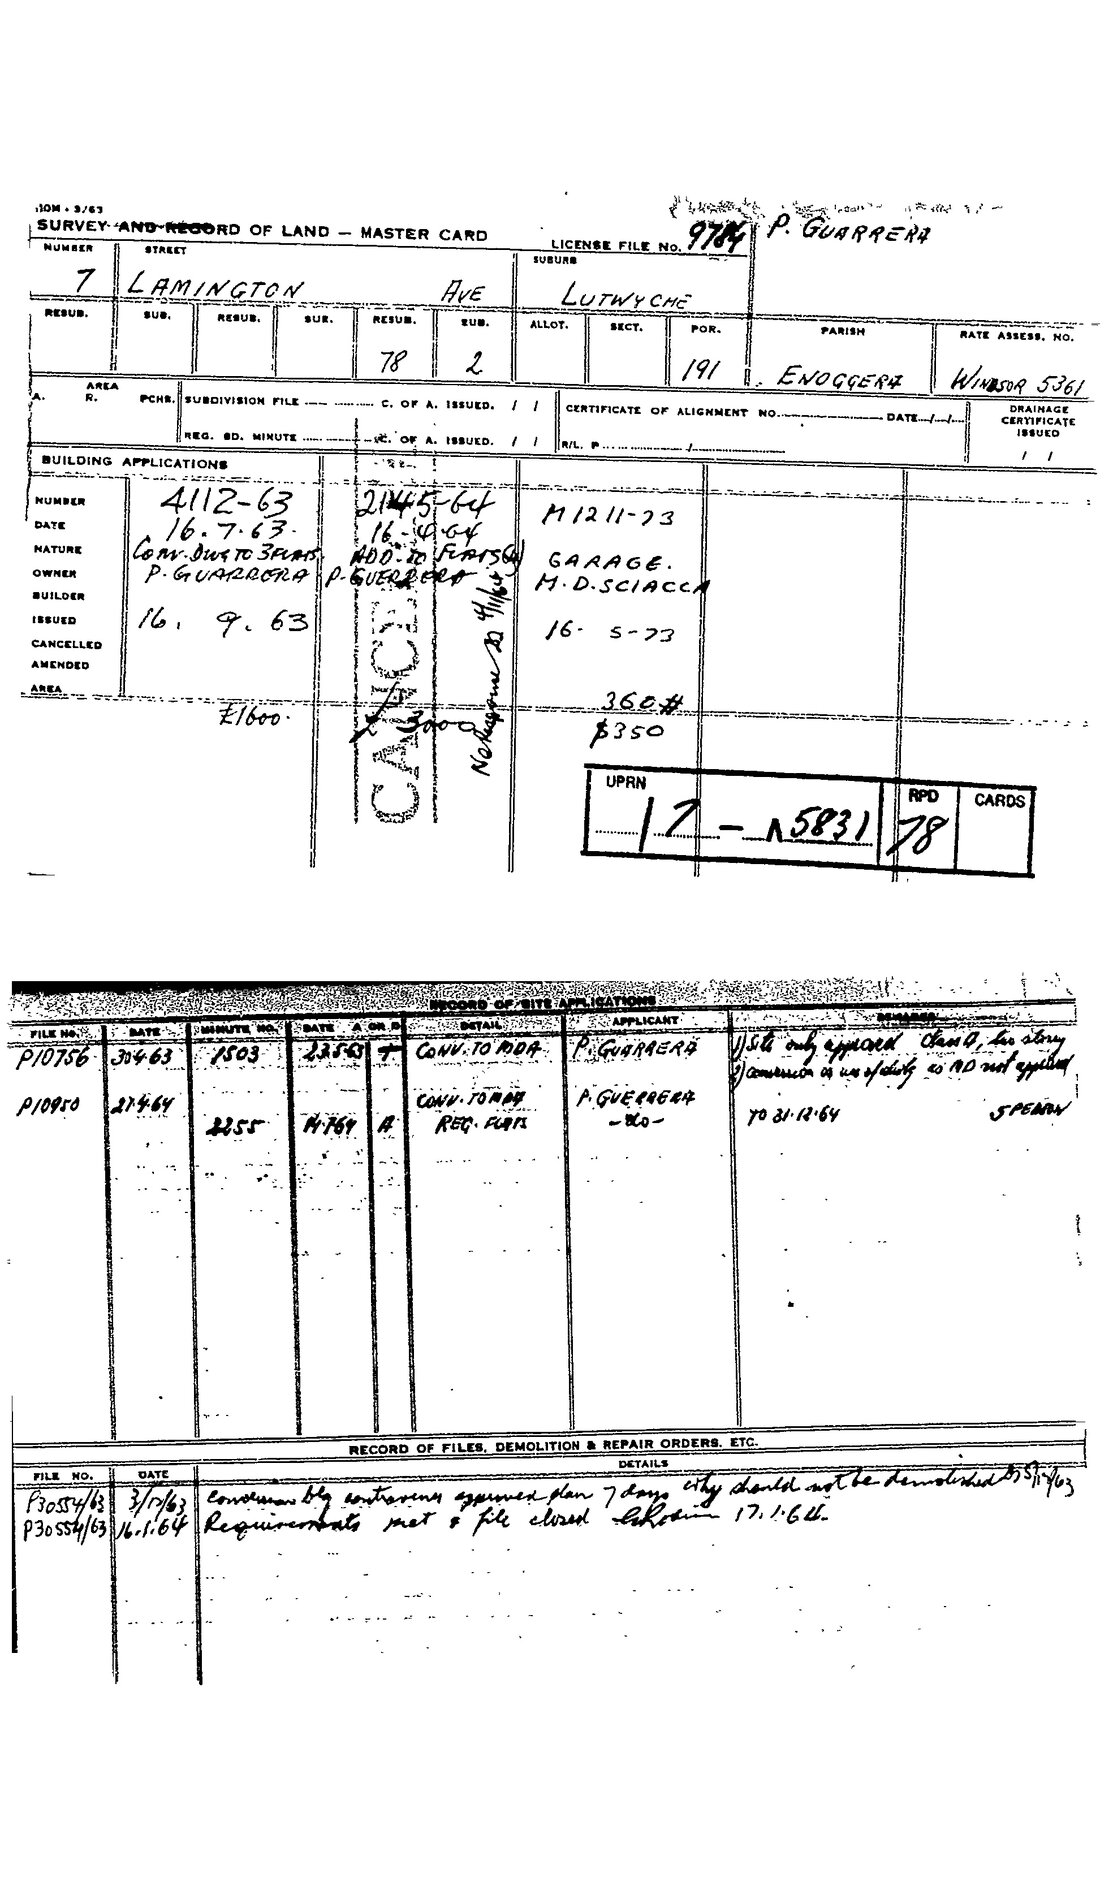 10M - 3/63
SURVEY AND RECORD OF LAND — MASTER CARD
LICENSE FILE No. 9784
P. GUARRERA
NUMBER STREET SUBURB
7 LAMINGTON AVE LUTWYCHE
RESUB. SUB. RESUB. SUB. RESUB. SUB. ALLOT. SECT. POR. PARISH RATE ASSESS. NO.
78 2 191 ENOGGERA WINDSOR 5361
AREA
A. R. PCHS. SUBDIVISION FILE C. OF A. ISSUED. / / CERTIFICATE OF ALIGNMENT NO. DATE / / DRAINAGE CERTIFICATE ISSUED
REG. BD. MINUTE C. OF A. ISSUED. / / R/L. P / / /
BUILDING APPLICATIONS
NUMBER 4112-63 2145-64 M1211-73
DATE 16.7.63. 16-4-64
NATURE CONV. DWG TO 3 FLATS. ADD. TO FLATS (4) GARAGE.
OWNER P. GUARRERA P. GUERRERA M. D. SCIACCA
BUILDER
ISSUED 16. 9. 63 16- 5-73
CANCELLED
AMENDED
AREA 360#
£1600. £ 3000 $350
CANCELLED
No Response 4/11/64
UPRN RPD CARDS
17 - 5831 78
RECORD OF SITE APPLICATIONS
FILE No. DATE MINUTE NO. DATE A OR D DETAIL APPLICANT REMARKS
P10756 30.4.63 1503 22.5.63 CONV. TO MDA P. GUARRERA 1) Site only approved Class A, two story
2) conversion as MD not approved
P10950 27.4.64 CONV. TO MDA P. GUERRERA
2255 14.7.64 A REG. FLATS -do- TO 31.12.64 5 PERSON
RECORD OF FILES, DEMOLITION & REPAIR ORDERS, ETC.
FILE NO. DATE DETAILS
P30554/63 3/12/63 Conversion blg contravenes approved plan 7 days why should not be demolished
P30554/63 16.1.64 Requirements met & file closed 17.1.64.